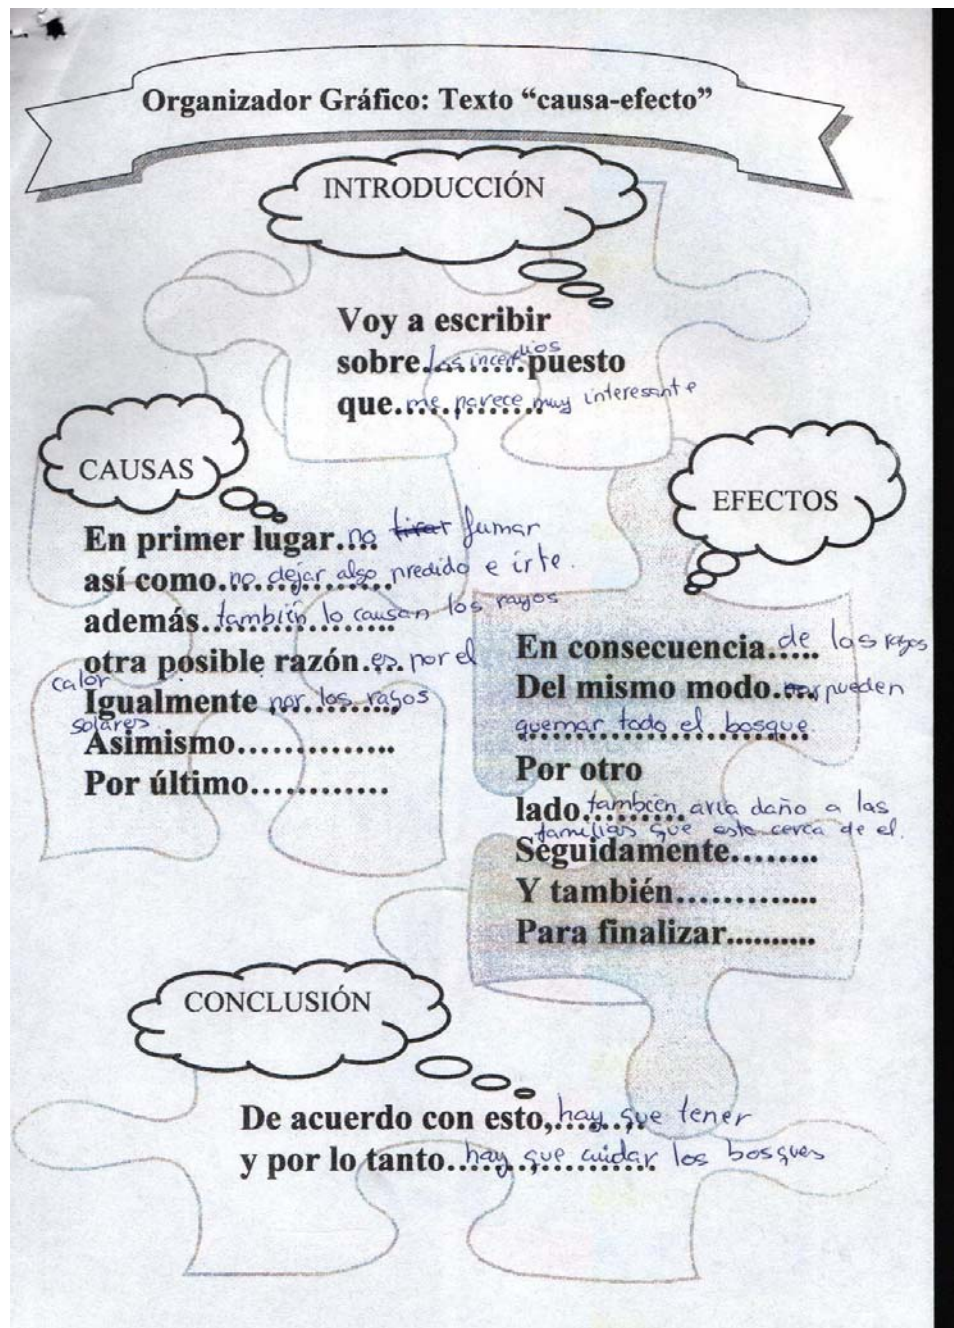 Organizador Gráfico: Texto “causa-efecto”
INTRODUCCIÓN
Voy a escribir
sobre los incendios puesto
que me parece muy interesante
CAUSAS
En primer lugar.... no tirar fumar
así como no dejar algo predido e irte.
además también lo causan los rayos
otra posible razón es por el
calor
Igualmente por los rayos
solares
Asimismo..............
Por último............
EFECTOS
En consecuencia..... de los rayos
Del mismo modo.... pueden
quemar todo el bosque.
Por otro
lado también aria daño a las
familias que este cerca de el.
Seguidamente........
Y también.............
Para finalizar..........
CONCLUSIÓN
De acuerdo con esto, hay que tener
y por lo tanto hay que cuidar los bosques